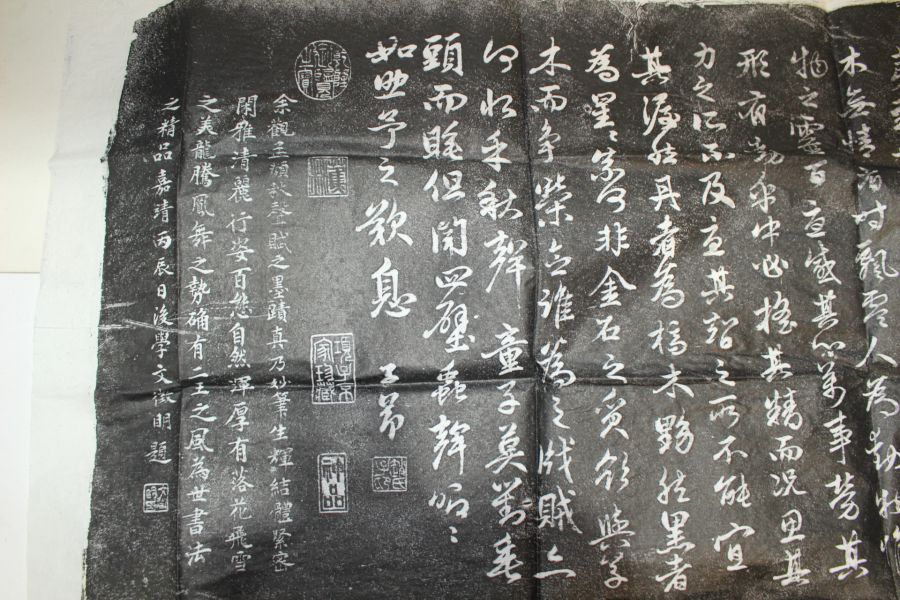 木無情有時飄零人為動物惟
物之靈百憂感其心萬事勞其
形有動乎中必搖其精而況思其
力之所不及憂其智之所不能宜
其渥然丹者為槁木黟然黑者
為星〻奈何非金石之質欲與草
木而爭榮念誰為之戕賊亦
何恨乎秋聲 童子莫對垂
頭而睡但聞四壁蟲聲唧〻
如助予之歎息 子昂
項子京家珍藏
神品
余觀孟頫秋聲賦之墨蹟真乃妙筆生輝結體緊密
閑雅清麗行姿百態自然渾厚有落花飛雪
之美龍騰鳳舞之勢确有二王之風為世書法
之精品嘉靖丙辰日後學文徵明題